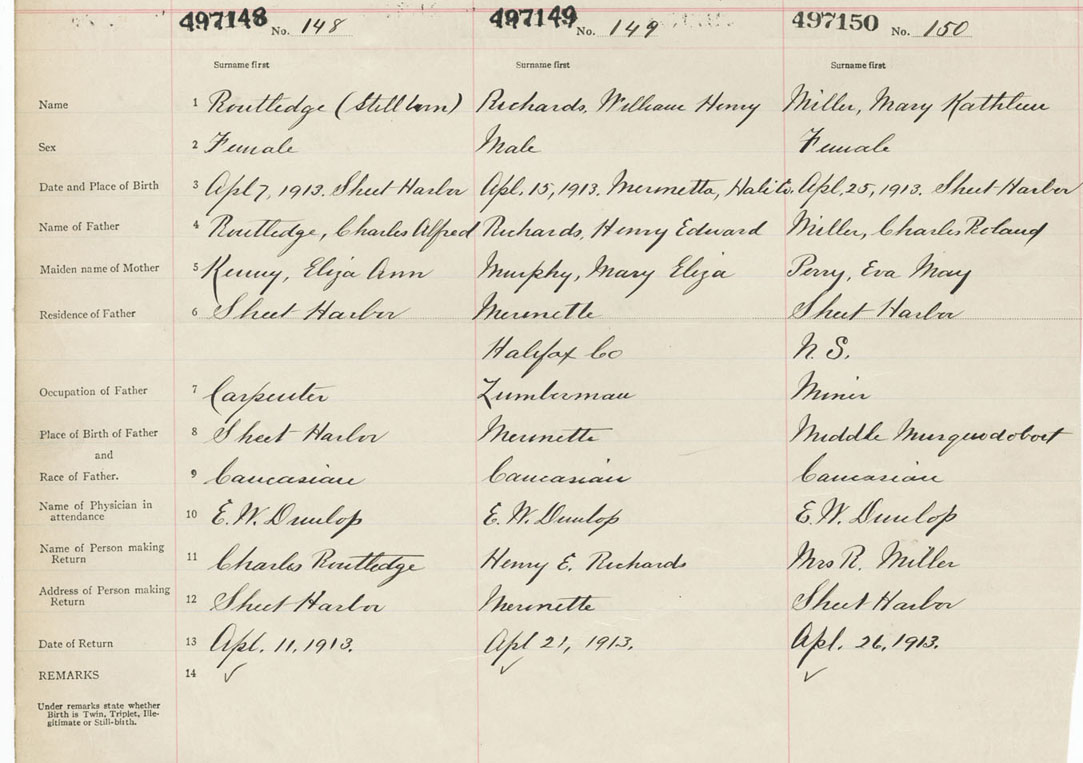 497148 No. 148 497149 No. 149 497150 No. 150
Surname first Surname first Surname first
Name 1 Routledge (Stillborn) Richards, William Henry Miller, Mary Kathleen
Sex 2 Female Male Female
Date and Place of Birth 3 Apl 7, 1913. Sheet Harbor Apl. 15, 1913. Halifx Co. Apl. 25, 1913. Sheet Harbor
Name of Father 4 Routledge, Charles Alfred Richards, Henry Edward Miller, Charles Roland
Maiden name of Mother 5 Kenny, Eliza Ann Murphy, Mary Eliza Perry, Eva May
Residence of Father 6 Sheet Harbor Sheet Harbor
Halifax Co N.S.
Occupation of Father 7 Carpenter Lumberman Miner
Place of Birth of Father 8 Sheet Harbor Middle Musquodoboit
and
Race of Father. 9 Caucasian Caucasian Caucasian
Name of Physician in
attendance 10 E.W. Dunlop E.W. Dunlop E.W. Dunlop
Name of Person making
Return 11 Charles Routledge Henry E. Richards Mrs R. Miller
Address of Person making
Return 12 Sheet Harbor Sheet Harbor
Date of Return 13 Apl. 11, 1913. Apl 21, 1913. Apl. 26, 1913.
REMARKS 14
Under remarks state whether
Birth is Twin, Triplet, Ille-
gitimate or Still-birth.